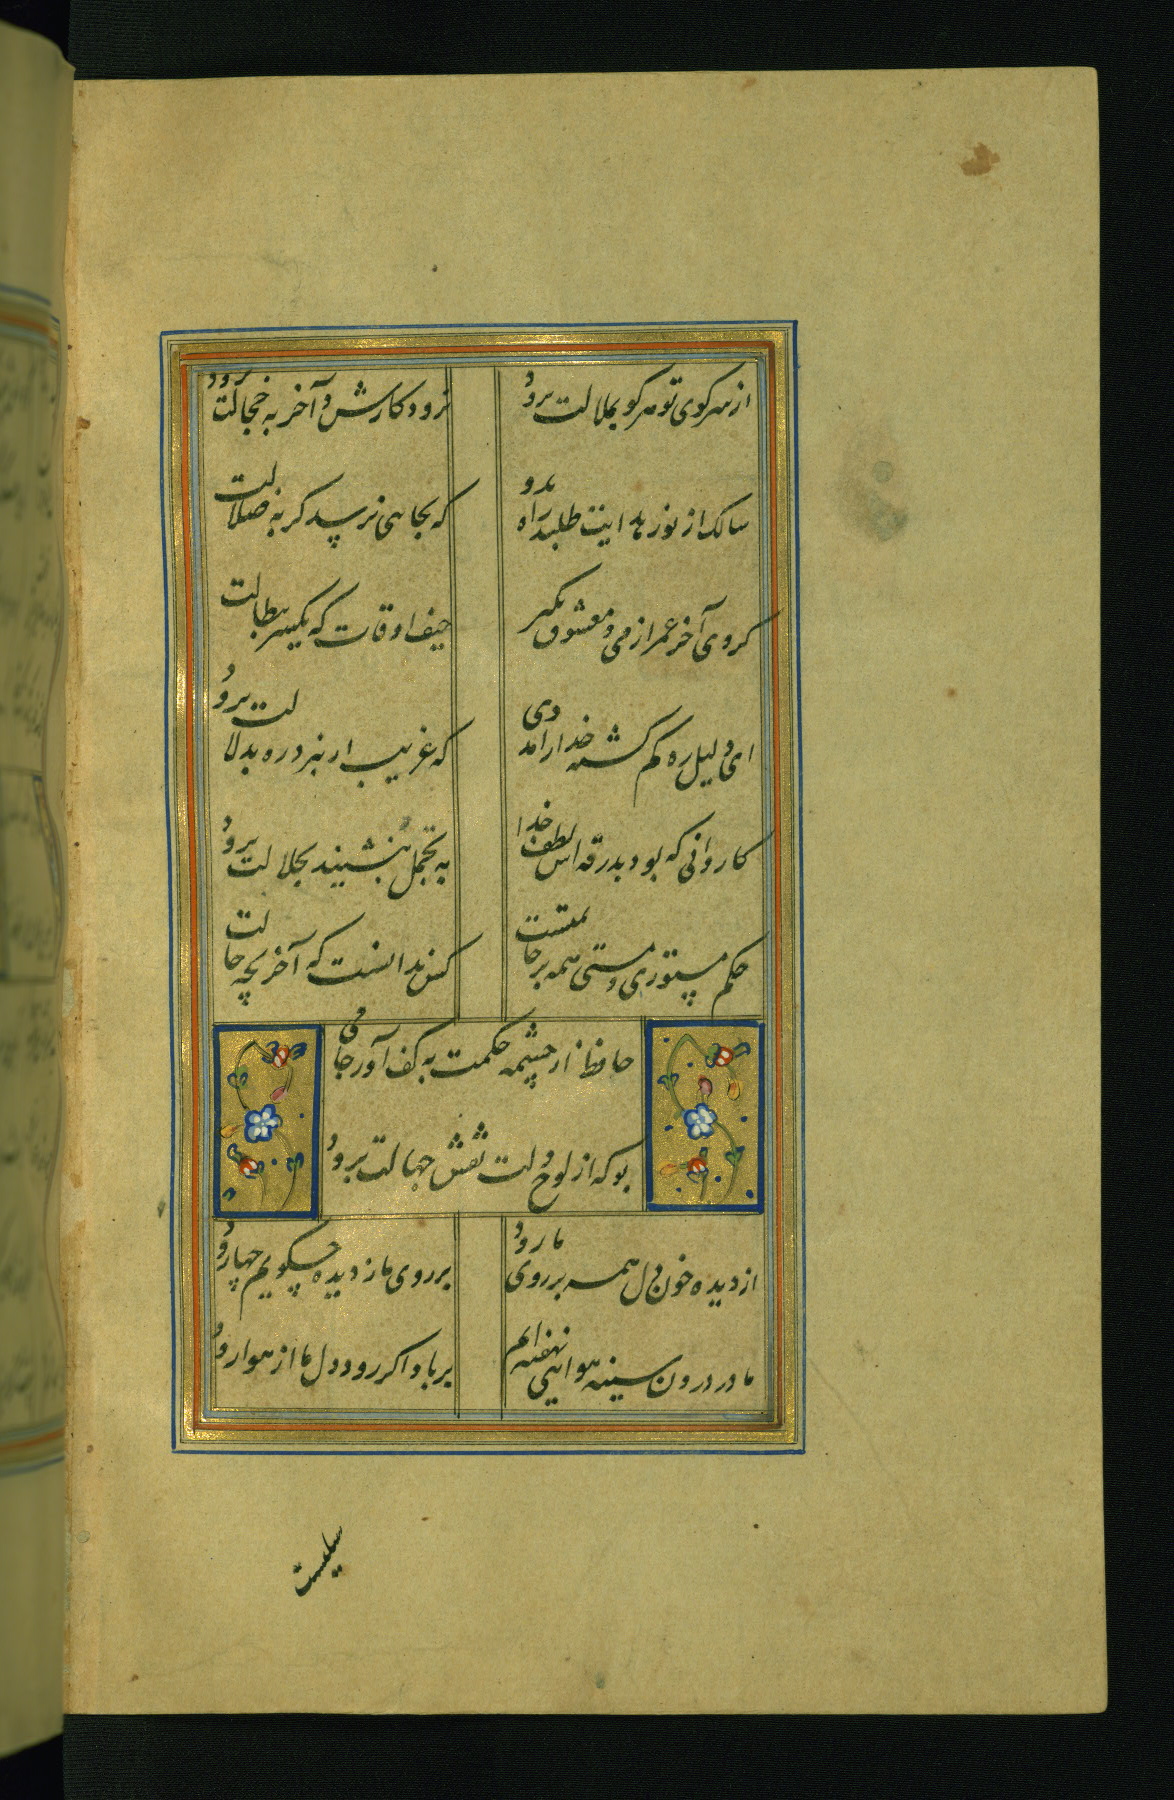 از سر کوی تو هر کو بملالت برود
نرود کارش و آخر به خجالت برود
سالک از نور هدایت طلبد راه بدو
که بجایی نرسد گر به ضلالت
گروی آخر عمر از می و معشوق بگیر
حیف اوقات که یکسر ببطالت
ای دلیل ره گم گشته خدا را مددی
که غریب ار نبرد ره بدلالت برود
کاروانی که بود بدرقه اش لطف خدا
به تجمل بنشیند بجلالت برود
حکم مستوری و مستی همه بر خاتمتست
کس ندانست که آخر بچه حالت
حافظ از چشمه حکمت به کف آور جامی
بو که از لوح دلت نقش جهالت برود
از دیده خون دل همه بر روی ما رود
بر روی ما ز دیده چگویم چها رود
ما در درون سینه هوایی نهفته ایم
بر باد اگر رود دل ما از هوا رود